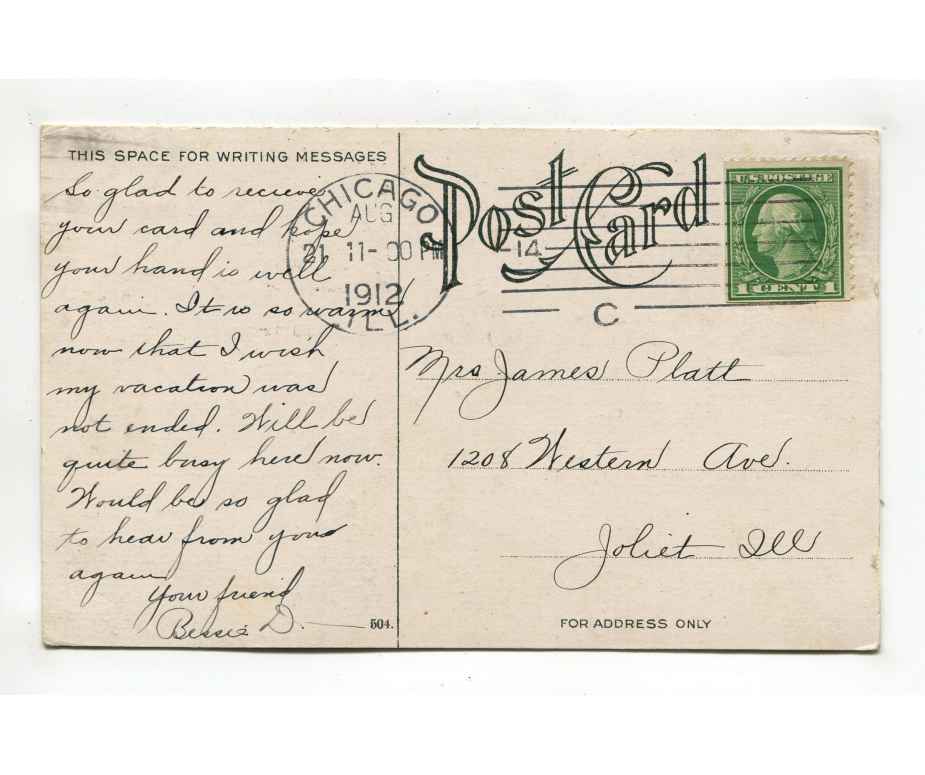 THIS SPACE FOR WRITING MESSAGES
So glad to recieve
your card and hope
your hand is well
again. It is so warm
now that I wish
my vacation was
not ended. Will be
quite busy here now.
Would be so glad
to hear from you
again
Your friend
Bessie D.
504.
Post Card
CHICAGO
AUG
21 11-00 PM
1912
ILL.
14
C
U.S. POSTAGE
1 CENT 1
Mrs James Platt
1208 Western Ave.
Joliet Ill
FOR ADDRESS ONLY